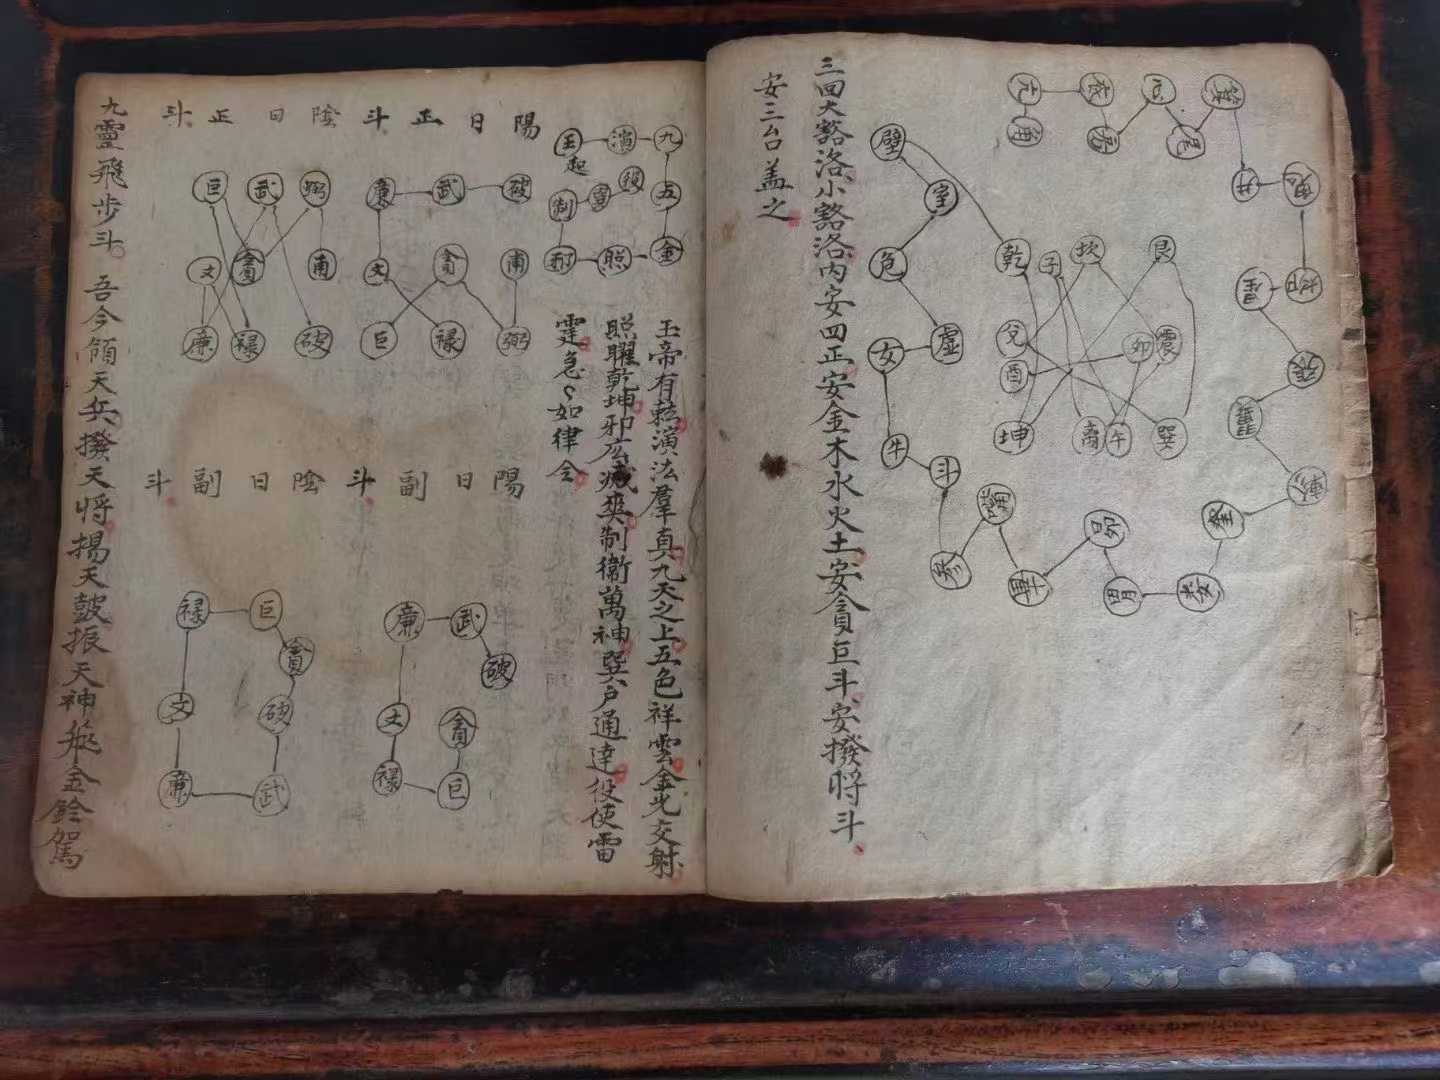 角
亢
氐
房
心
尾
箕
井
鬼
柳
星
張
翼
軫
奎
婁
胃
昴
畢
觜
參
斗
牛
女
虛
危
室
壁
乾
子
坎
艮
兌
酉
卯
震
坤
離
午
巽
三回大豁洛小豁洛内安四正安金木水火土安貪巨斗安撥將斗
安三台盖之
玉
起
演
九
五
金
照
邪
制
役
玉帝有勅演法羣真九天之上五色祥雲金光交射
照耀乾坤邪広滅爽制衛萬神巽户通達役使雷
霆急々如律令
陽日正斗
破
武
廉
文
巨
貪
禄
弼
甫
陰日正斗
弼
武
巨
甫
貪
文
破
禄
廉
陽日副斗
破
武
廉
文
禄
巨
貪
陰日副斗
貪
巨
禄
文
廉
武
破
九靈飛步斗
吾今領天兵撥天將揚天鼓振天神飛金鈴駕